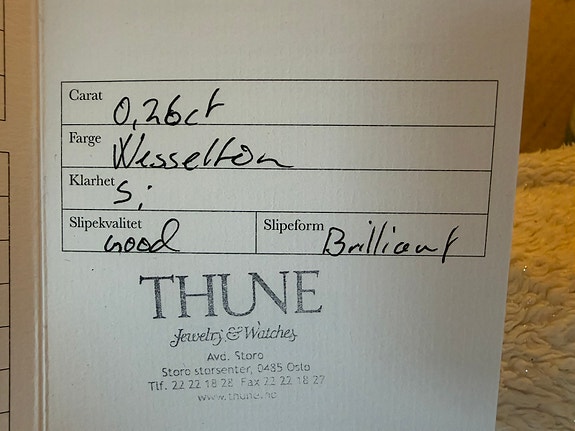 Carat 0,26ct
Farge Wesselton
Klarhet Si
Slipekvalitet Good Slipeform Brilliant
THUNE
Jewelry & Watches
Avd. Storo
Storo storsenter, 0485 Oslo
Tlf. 22 22 18 28 Fax 22 22 18 27
www.thune.no